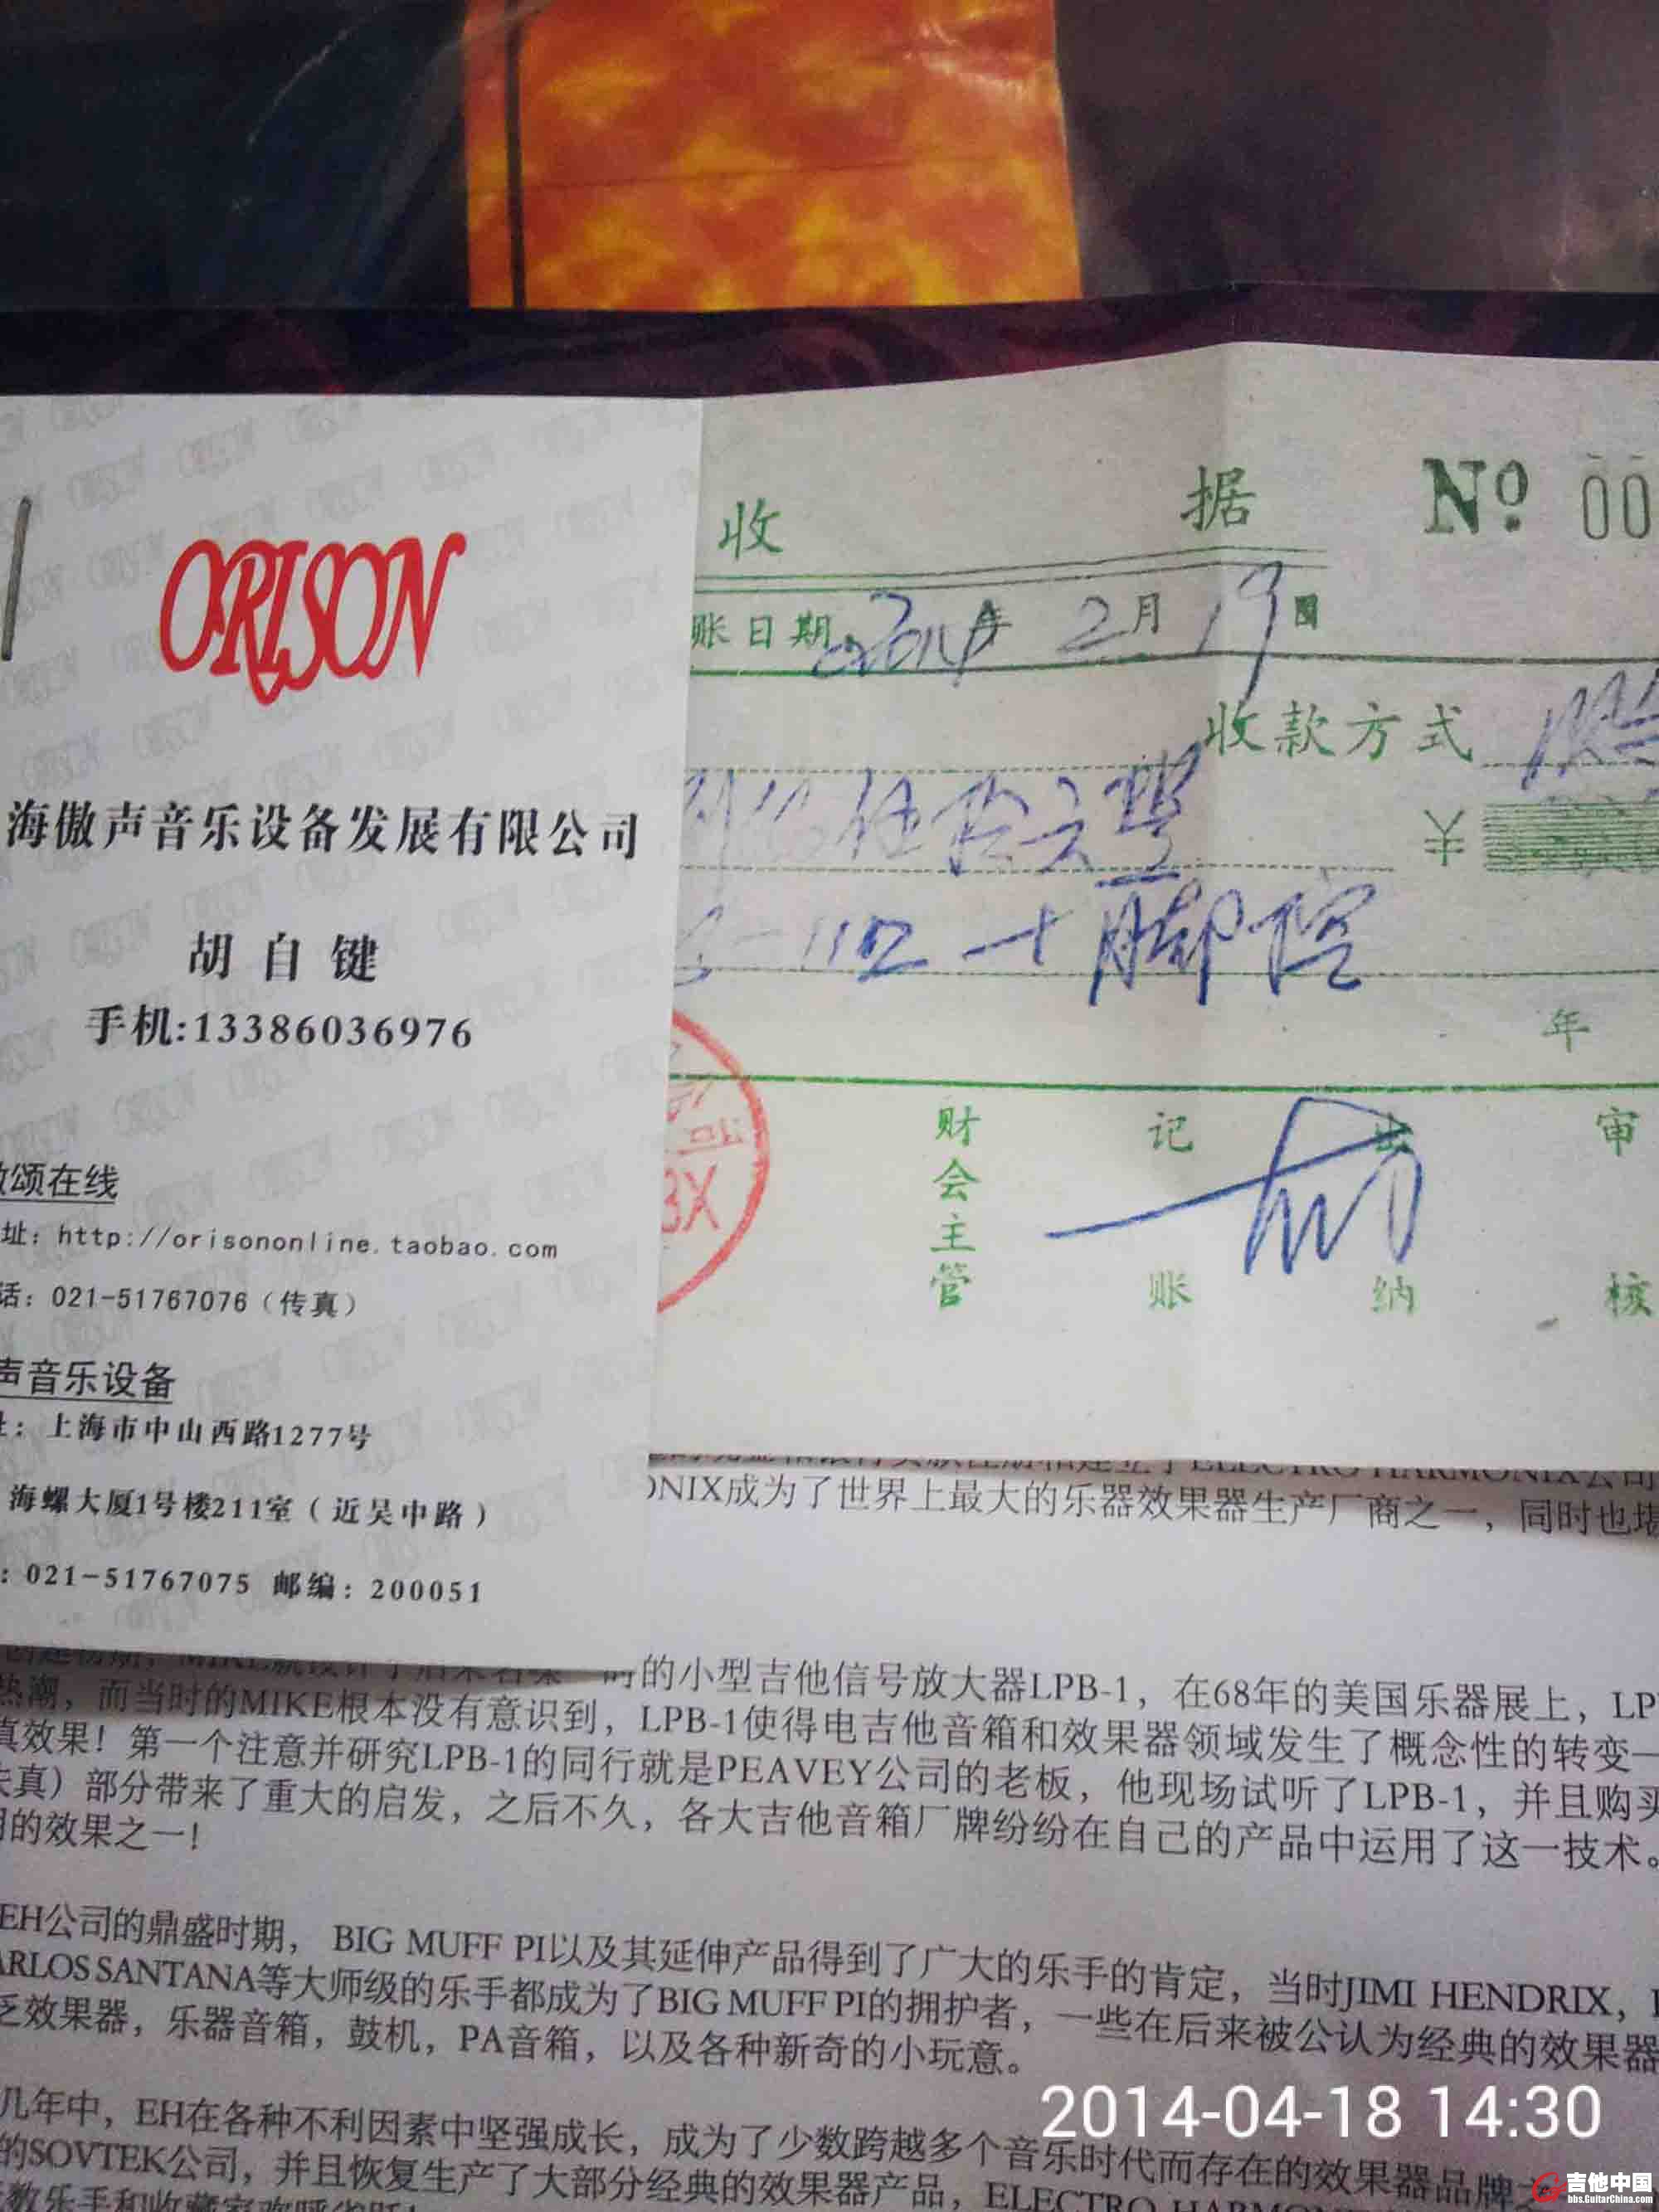 ORISON
海傲声音乐设备发展有限公司
胡自键
手机:13386036976
颂在线
址：http://orisononline.taobao.com
话：021-51767076（传真）
声音乐设备
：上海市中山西路1277号
海螺大厦1号楼211室（近吴中路）
：021-51767075 邮编：200051
收据 Nº 00
账日期 2014年 2月 19日
收款方式
¥
112 + 脚控
年
3X
财会主管 记账 出纳 审核
ONIX成为了世界上最大的乐器效果器生产厂商之一，同时也堪
的小型吉他信号放大器LPB-1，在68年的美国乐器展上，LP
热潮，而当时的MIKE根本没有意识到，LPB-1使得电吉他音箱和效果器领域发生了概念性的转变一
真效果！第一个注意并研究LPB-1的同行就是PEAVEY公司的老板，他现场试听了LPB-1，并且购买
失真）部分带来了重大的启发，之后不久，各大吉他音箱厂牌纷纷在自己的产品中运用了这一技术。
的效果之一！
EH公司的鼎盛时期， BIG MUFF PI以及其延伸产品得到了广大的乐手的肯定，当时JIMI HENDRIX，
ARLOS SANTANA等大师级的乐手都成为了BIG MUFF PI的拥护者，一些在后来被公认为经典的效果器
乏效果器，乐器音箱，鼓机，PA音箱，以及各种新奇的小玩意。
几年中，EH在各种不利因素中坚强成长，成为了少数跨越多个音乐时代而存在的效果器品牌
的SOVTEK公司，并且恢复生产了大部分经典的效果器产品，ELECTRO HARMON
2014-04-18 14:30
吉他中国
bbs.GuitarChina.com